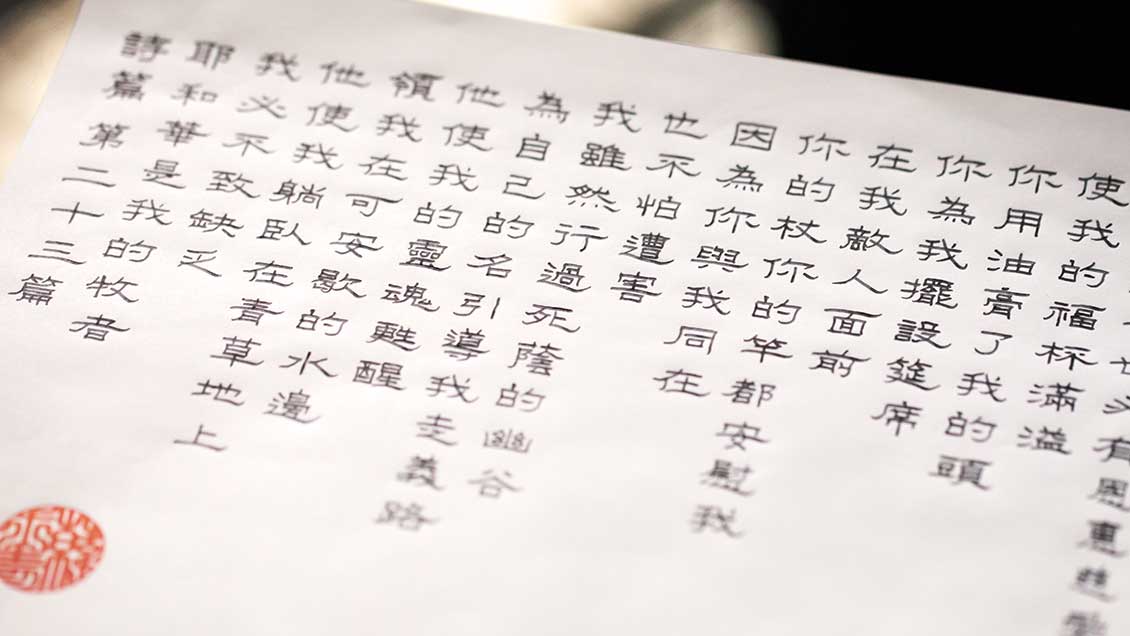 詩篇第二十三篇
耶和華是我的牧者
我必不致缺乏
他使我躺臥在青草地上
領我在可安歇的水邊
他使我的靈魂甦醒
為自己的名引導我走義路
我雖然行過死蔭的幽谷
也不怕遭害
因為你與我同在
你的杖你的竿都安慰我
在我敵人面前
你為我擺設筵席
你用油膏了我的頭
使我的福杯滿溢
必有恩惠慈